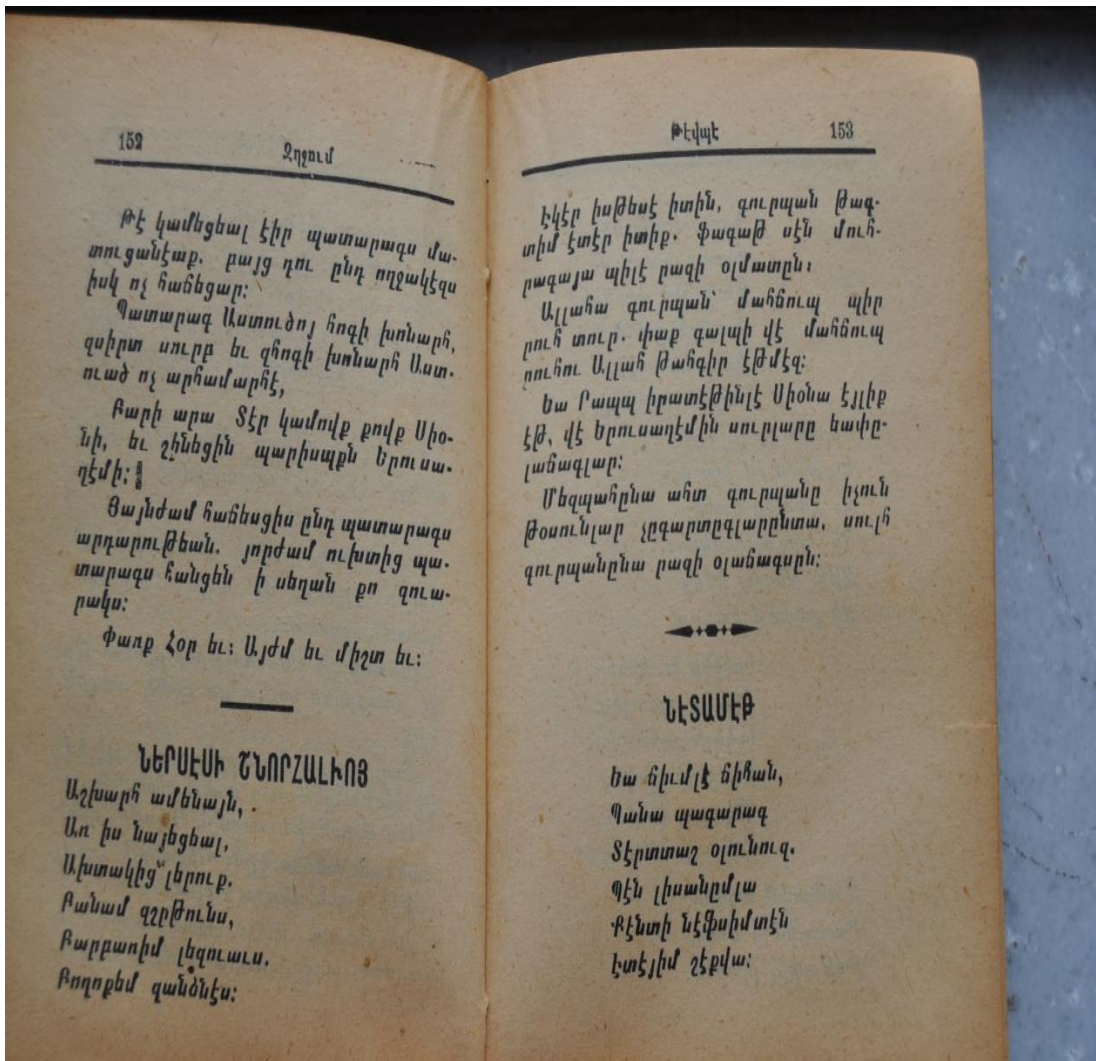 152
Զղջում
Թէ կամեցեալ էիր պատարագս մա-
տուցանէաք. բայց դու ընդ ողջակէզս
իսկ ոչ հաճեցար։
Պատարագ Աստուծոյ հոգի խոնարհ,
զսիրտ սուրբ եւ զհոգի խոնարհ Աստ-
ուած ոչ արհամարհէ,
Բարի արա Տէր կամովք քովք Սիօ-
նի, եւ շինեցին պարիսպքն Երուսա-
ղէմի։
Յայնժամ հաճեսցիս ընդ պատարագս
արդարութեան. յորժամ ուխտից պա-
տարագս հանցեն ի սեղան քո զուա-
րակս։
Փառք Հօր եւ։ Այժմ եւ միշտ եւ։
ՆԵՐՍԷՍԻ ՇՆՈՐՀԱԼԻՈՅ
Աշխարհ ամենայն,
Առ իս նայեցեալ,
Ախտակից լերուք.
Բանամ զշրթունս,
Բարբառիմ լեզուաւս.
Բողոքեմ զանձնէս։
Թէվպէ
153
Էկէր իսթեսէ իտին, գուրպան թագ-
տիմ էտէր իտիք. Ֆագաթ սէն մուհ-
րագայա պիլէ րազի օլմատըն։
Ալլահա գուրպան՝ մահճուպ պիր
րուհ տուր. փաք գալպի վէ մահճուպ
րուհու Ալլահ թահգիր էթմէզ։
Եա Րապպ իրատէթինլէ Սիօնա էյլիք
էթ, վէ Երուսաղէմին սուրլարը եափը-
լաճագլար։
Մեզպահընա ահտ գուրպանը իչուն
թօսունլար չըգարտըգլարընտա, սուլհ
գուրպանընա րազի օլաճագսըն։
ՆԷՏԱՄԷԹ
Եա ճիւմլէ ճիհան,
Պանա պագարագ
Տէրտտաշ օլունուզ.
Պէն լիսանըմլա
Քէնտի նէֆսիմտէն
Էտէյիմ շէքվա։